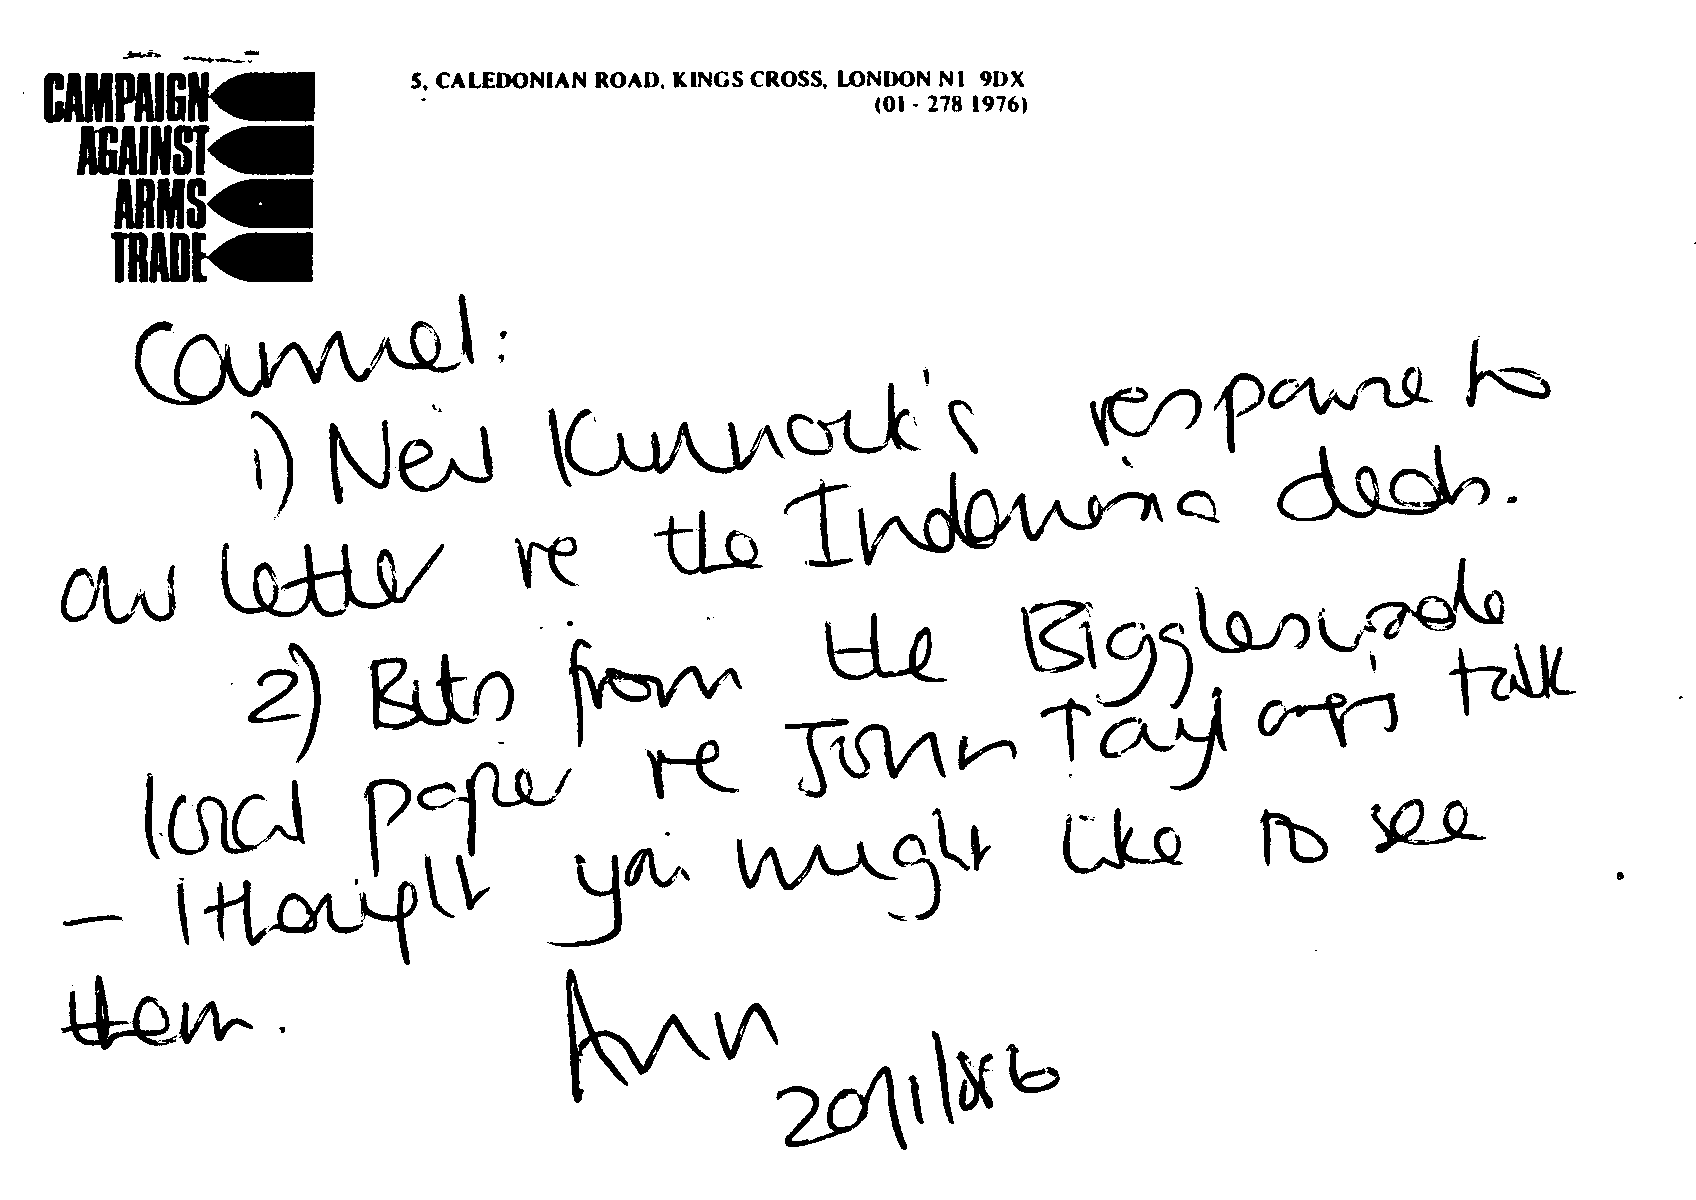 CAMPAIGN
AGAINST
ARMS
TRADE
5, CALEDONIAN ROAD, KINGS CROSS, LONDON N1 9DX
(01 - 278 1976)
Carmel:
1) Neil Kinnock's response to
our letter re the Indonesia deals.
2) Bits from the Biggleswade
local paper re John Taylor's talk
- I thought you might like to see
them.
Ann
20/1/86